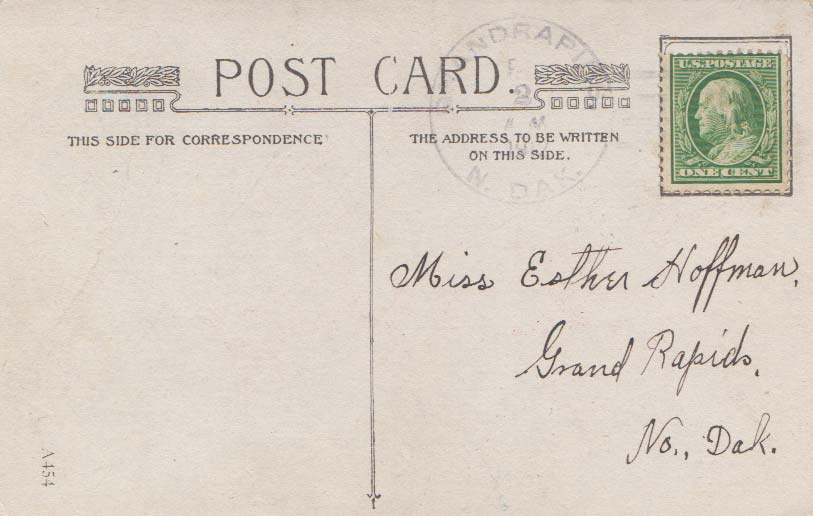 POST CARD.
THIS SIDE FOR CORRESPONDENCE
THE ADDRESS TO BE WRITTEN
ON THIS SIDE.
2
N. DAK.
U.S. POSTAGE
ONE CENT
Miss Esther Hoffman,
Grand Rapids,
No., Dak.
A454